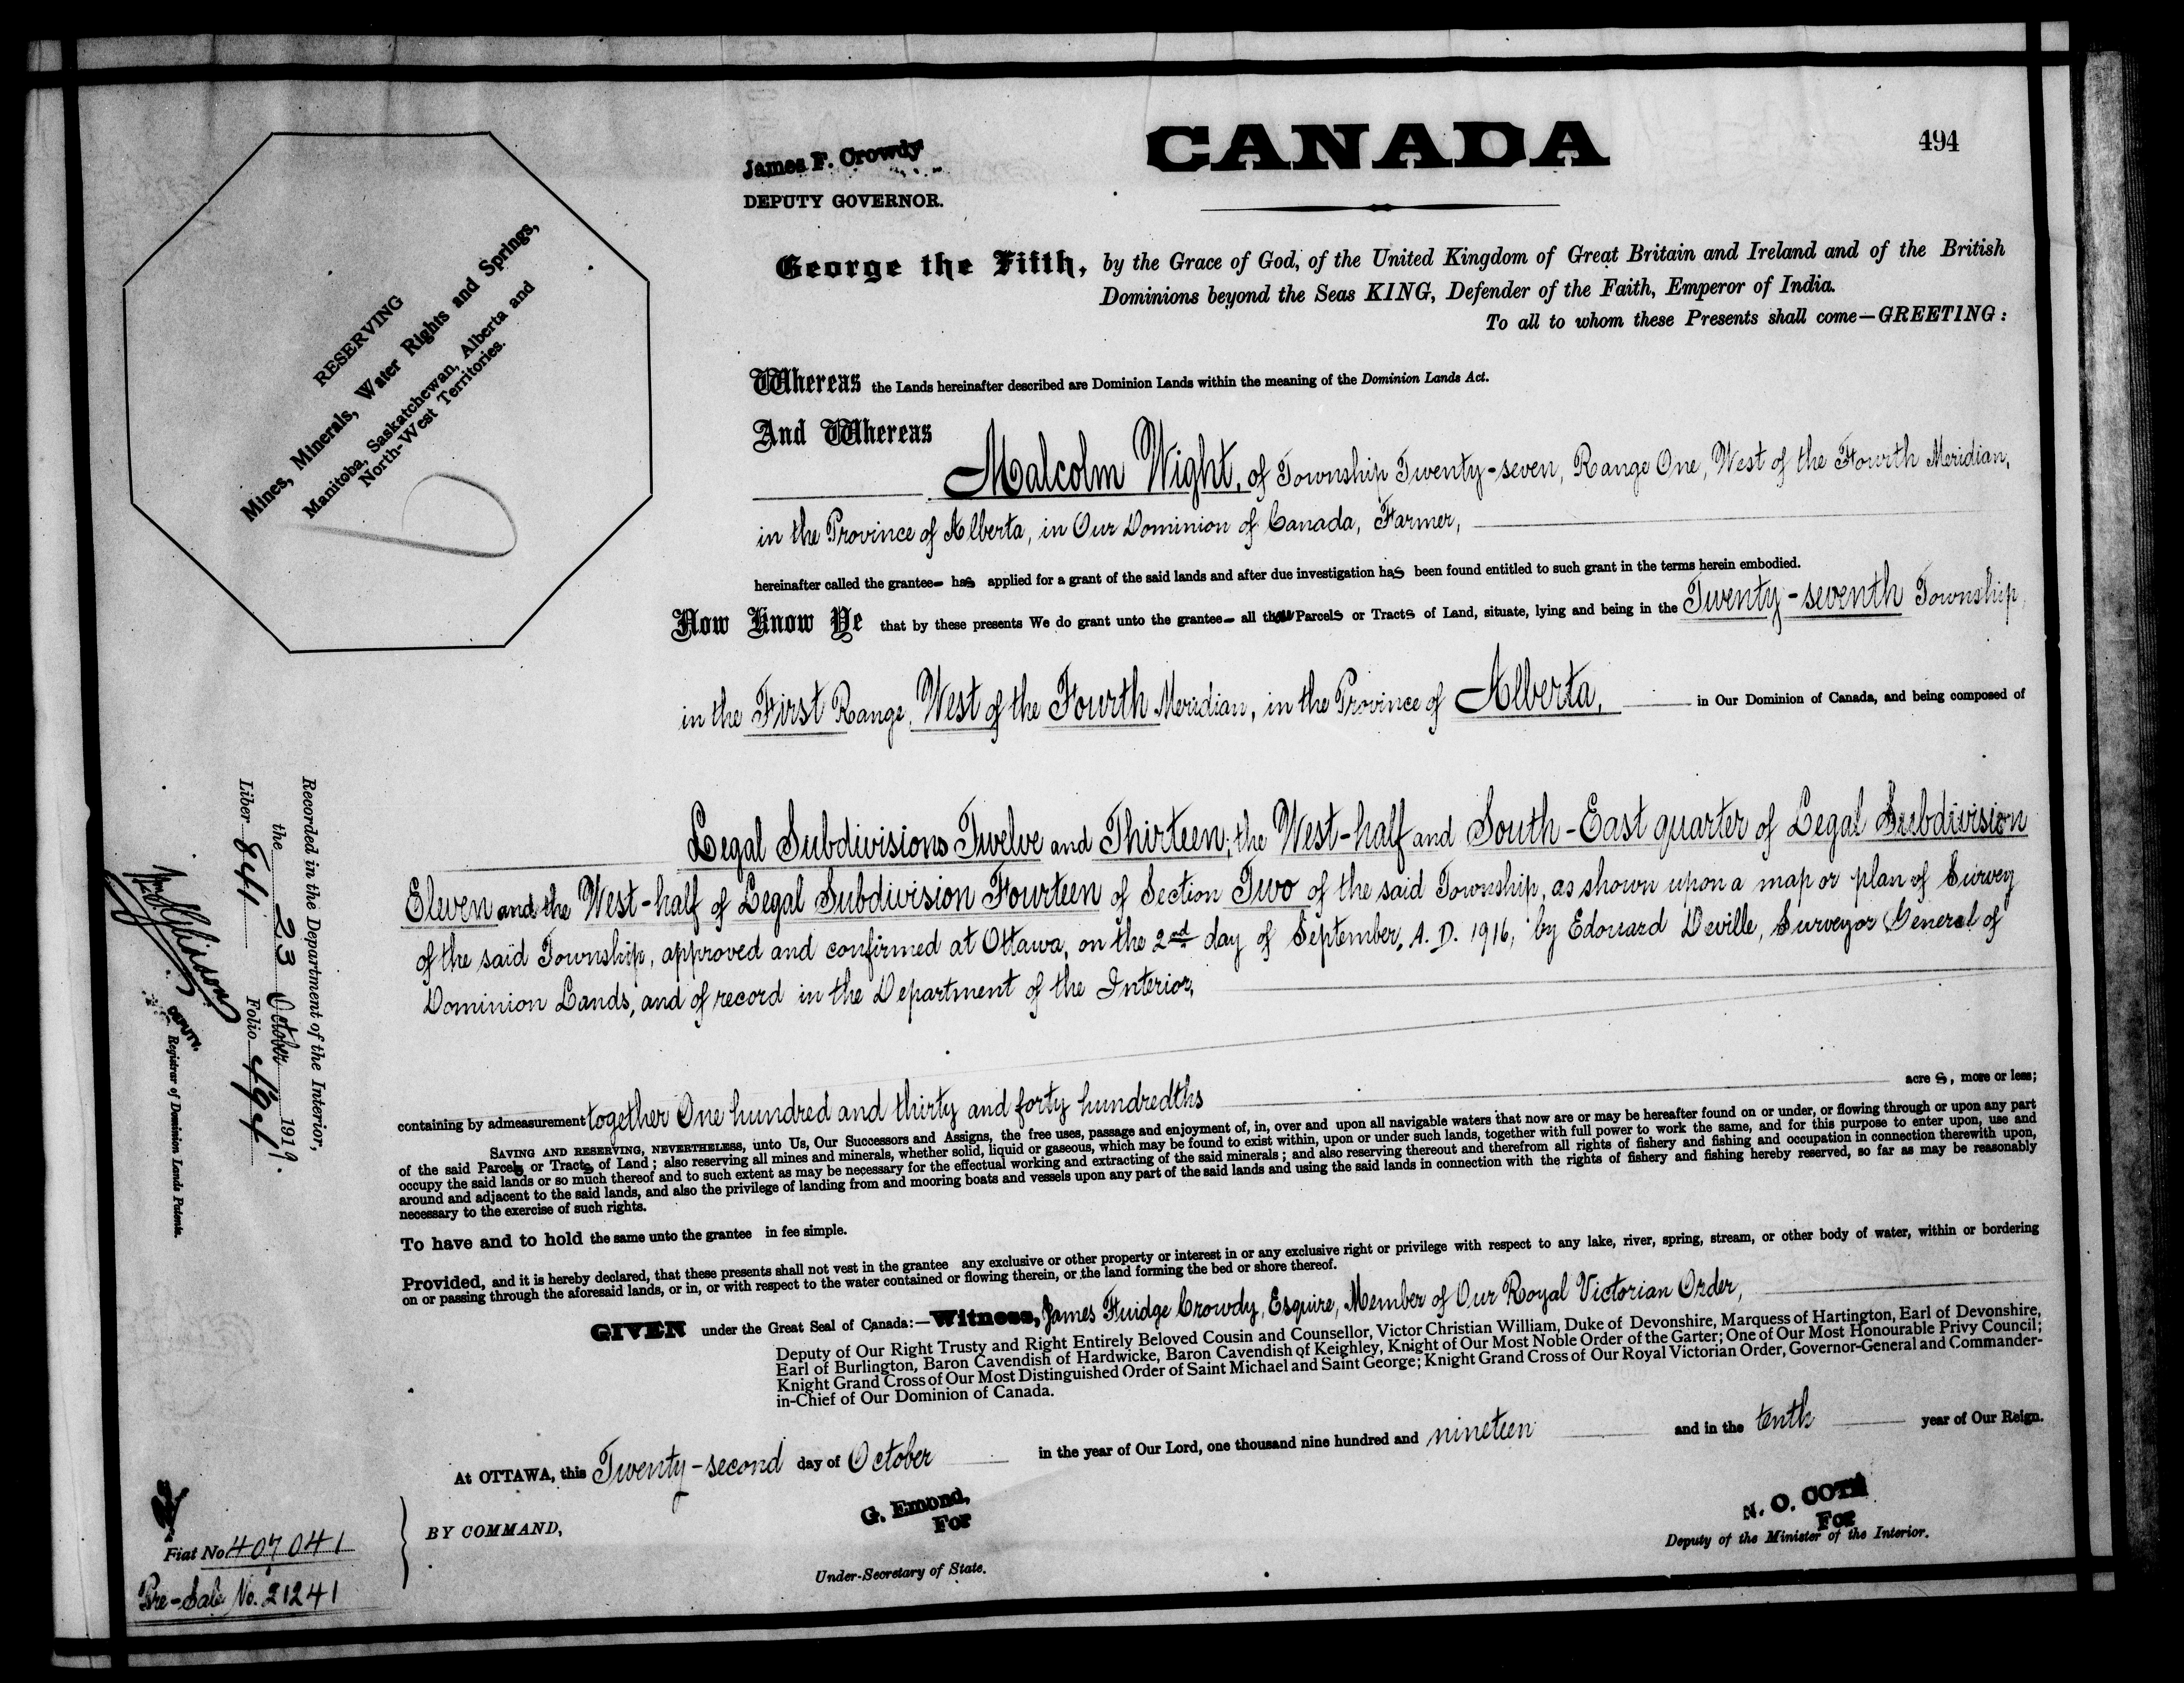 CANADA
494
James F. Crowdy
DEPUTY GOVERNOR.
RESERVING
Mines, Minerals, Water Rights and Springs,
Manitoba, Saskatchewan, Alberta and
North-West Territories.
George the Fifth, by the Grace of God, of the United Kingdom of Great Britain and Ireland and of the British
Dominions beyond the Seas KING, Defender of the Faith, Emperor of India.
To all to whom these Presents shall come—GREETING:
Whereas the Lands hereinafter described are Dominion Lands within the meaning of the Dominion Lands Act.
And Whereas
Malcolm Wight, of Township Twenty-seven, Range One, West of the Fourth Meridian,
in the Province of Alberta, in Our Dominion of Canada, Farmer,
hereinafter called the grantee has applied for a grant of the said lands and after due investigation has been found entitled to such grant in the terms herein embodied.
Now Know Ye that by these presents We do grant unto the grantee all those Parcels or Tracts of Land, situate, lying and being in the Twenty-seventh Township
in the First Range, West of the Fourth Meridian, in the Province of Alberta, in Our Dominion of Canada, and being composed of
Legal Subdivisions Twelve and Thirteen; the West-half and South-East quarter of Legal Subdivision
Eleven and the West-half of Legal Subdivision Fourteen of Section Two of the said Township, as shown upon a map or plan of Survey
of the said Township, approved and confirmed at Ottawa, on the 2nd day of September, A. D. 1916, by Edouard Deville, Surveyor General of
Dominion Lands, and of record in the Department of the Interior,
containing by admeasurement together One hundred and thirty and forty hundredths acres, more or less;
SAVING AND RESERVING, NEVERTHELESS, unto Us, Our Successors and Assigns, the free uses, passage and enjoyment of, in, over and upon all navigable waters that now are or may be hereafter found on or under, or flowing through or upon any part
of the said Parcels or Tracts of Land; also reserving all mines and minerals, whether solid, liquid or gaseous, which may be found to exist within, upon or under such lands, together with full power to work the same, and for this purpose to enter upon, use and
occupy the said lands or so much thereof and to such extent as may be necessary for the effectual working and extracting of the said minerals; and also reserving thereout and therefrom all rights of fishery and fishing and occupation in connection therewith upon,
around and adjacent to the said lands, and also the privilege of landing from and mooring boats and vessels upon any part of the said lands and using the said lands in connection with the rights of fishery and fishing hereby reserved, so far as may be reasonably
necessary to the exercise of such rights.
To have and to hold the same unto the grantee in fee simple.
Provided, and it is hereby declared, that these presents shall not vest in the grantee any exclusive or other property or interest in or any exclusive right or privilege with respect to any lake, river, spring, stream, or other body of water, within or bordering
on or passing through the aforesaid lands, or in, or with respect to the water contained or flowing therein, or the land forming the bed or shore thereof.
GIVEN under the Great Seal of Canada:—Witness, James Fuidge Crowdy, Esquire, Member of Our Royal Victorian Order,
Deputy of Our Right Trusty and Right Entirely Beloved Cousin and Counsellor, Victor Christian William, Duke of Devonshire, Marquess of Hartington, Earl of Devonshire,
Earl of Burlington, Baron Cavendish of Hardwicke, Baron Cavendish of Keighley, Knight of Our Most Noble Order of the Garter; One of Our Most Honourable Privy Council;
Knight Grand Cross of Our Most Distinguished Order of Saint Michael and Saint George; Knight Grand Cross of Our Royal Victorian Order, Governor-General and Commander-
in-Chief of Our Dominion of Canada.
At OTTAWA, this Twenty-second day of October in the year of Our Lord, one thousand nine hundred and nineteen and in the tenth year of Our Reign.
BY COMMAND,
G. Emond,
For
Under-Secretary of State.
N. O. COTÉ
For
Deputy of the Minister of the Interior.
Recorded in the Department of the Interior,
the 23 October 1919.
Liber 841 Folio 494
DEPUTY.
Registrar of Dominion Lands Patents.
Fiat No 407041
Pre-Sale No. 21241